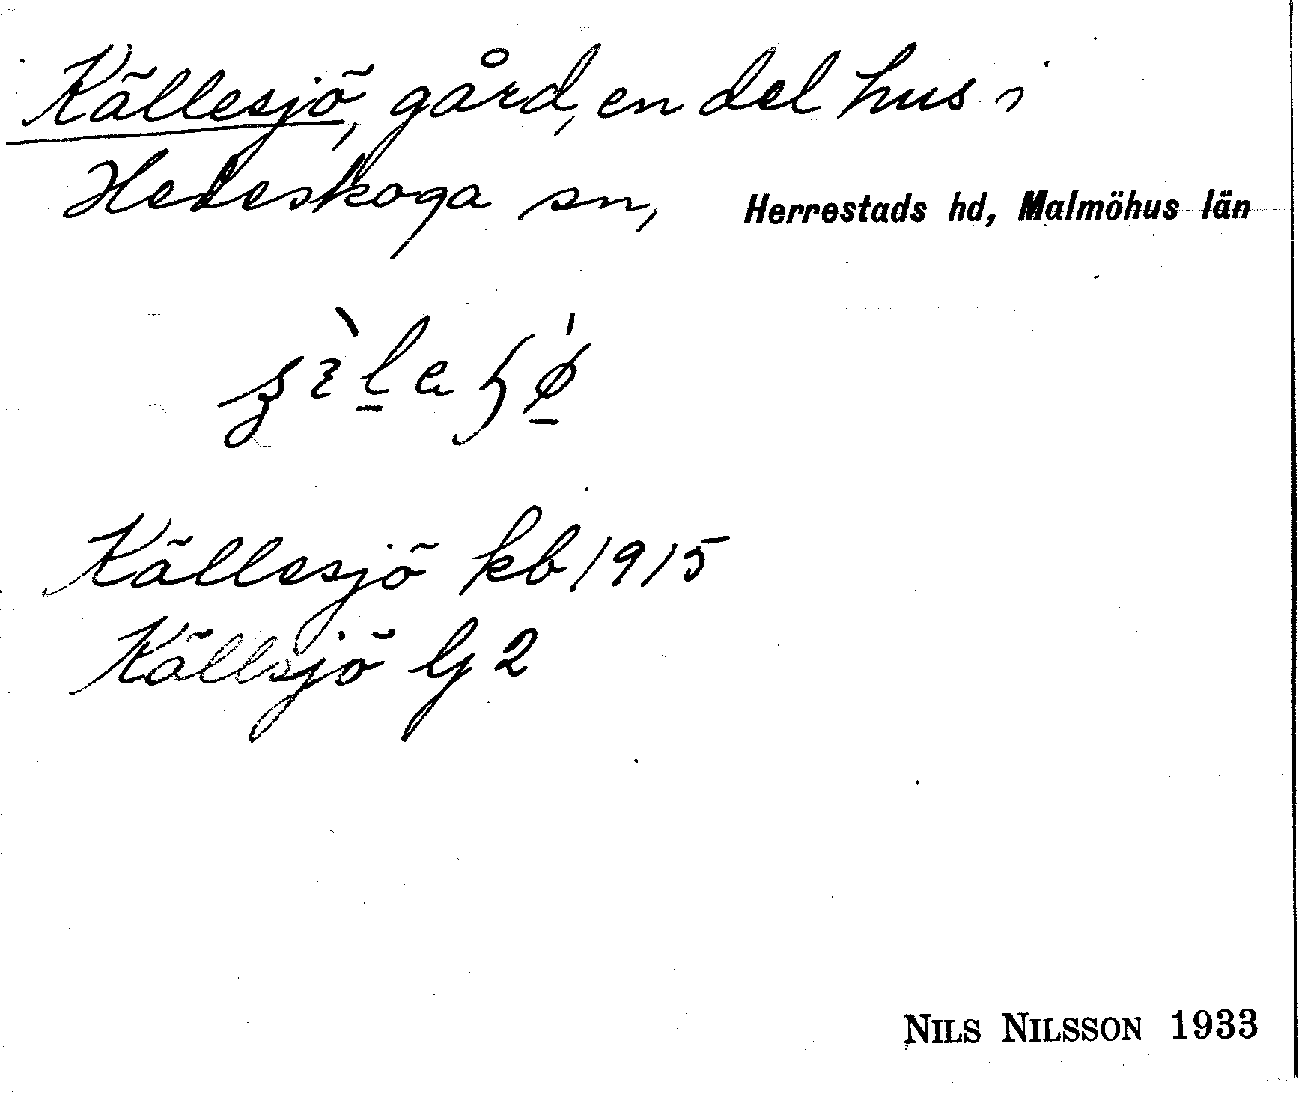 Källesjö, gård, en del hus i
Hedeskoga sn, Herrestads hd, Malmöhus län
Källesjö kb 1915
Källsjö Lj 2
NILS NILSSON 1933